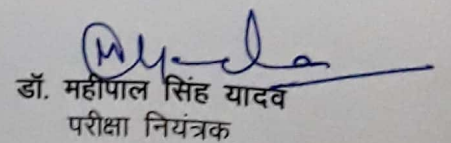 डॉ. महीपाल सिंह यादव
परीक्षा नियंत्रक